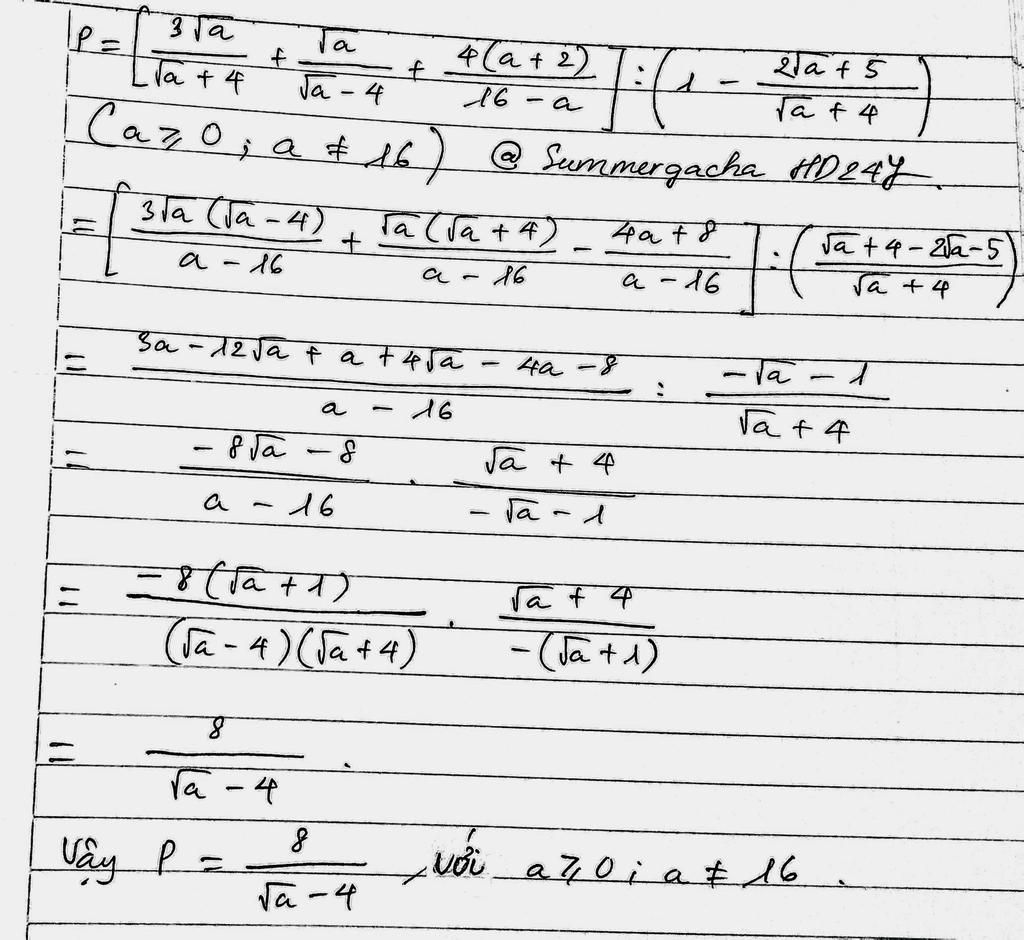 P = [ 3√a / (√a + 4) + √a / (√a - 4) + 4(a + 2) / (16 - a) ] : ( 1 - (2√a + 5) / (√a + 4) )
(a ⩾ 0 ; a ≠ 16) @ Summergacha HD24Y.
= [ 3√a (√a - 4) / (a - 16) + √a (√a + 4) / (a - 16) - (4a + 8) / (a - 16) ] : ( (√a + 4 - 2√a - 5) / (√a + 4) )
= (3a - 12√a + a + 4√a - 4a - 8) / (a - 16) : (-√a - 1) / (√a + 4)
= (-8√a - 8) / (a - 16) . (√a + 4) / (-√a - 1)
= -8(√a + 1) / (√a - 4)(√a + 4) . (√a + 4) / -(√a + 1)
= 8 / (√a - 4) .
Vậy P = 8 / (√a - 4) , với a ⩾ 0 ; a ≠ 16 .